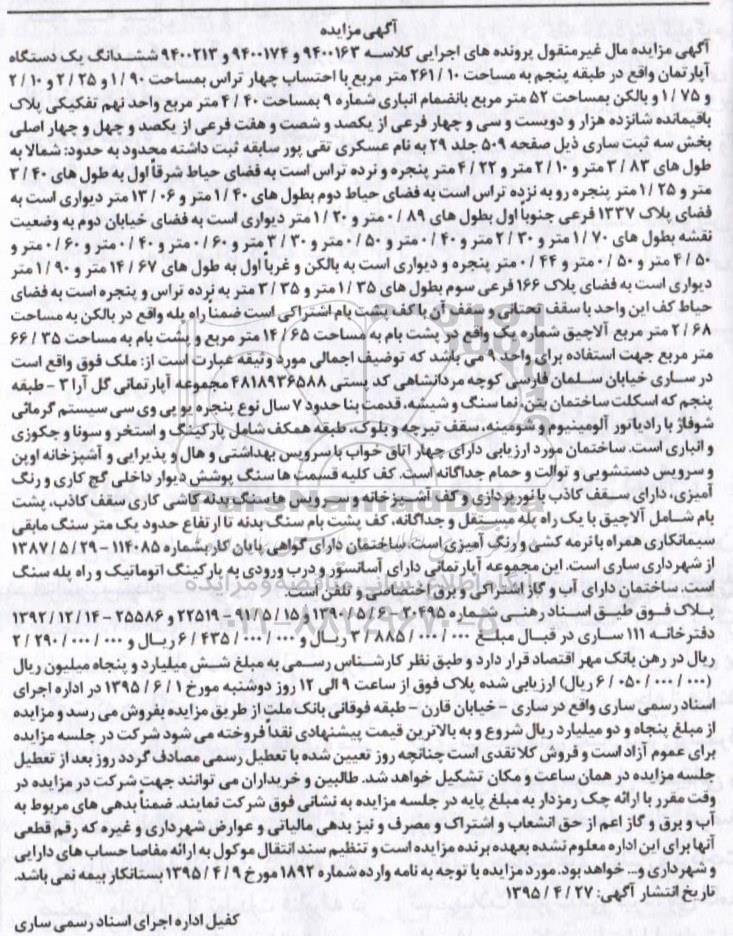 آگهی مزایده
آگهی مزایده مال غیرمنقول پرونده های اجرایی کلاسه ۹۴۰۰۱۶۳ و ۹۴۰۰۱۷۴ و ۹۴۰۰۲۱۳ ششدانگ یک دستگاه
آپارتمان واقع در طبقه پنجم به مساحت ۲۶۱/۱۰ متر مربع با احتساب چهار تراس بمساحت ۱/۹۰ و ۲/۲۵ و ۲/۱۰
و ۱/۷۵ و بالکن بمساحت ۵۲ متر مربع بانضمام انباری شماره ۹ بمساحت ۴/۴۰ متر مربع واحد نهم تفکیکی پلاک
باقیمانده شانزده هزار و دویست و سی و چهار فرعی از یکصد و شصت و هفت فرعی از یکصد و چهل و چهار اصلی
بخش سه ثبت ساری ذیل صفحه ۵۰۹ جلد ۲۹ به نام عسکری تقی پور سابقه ثبت داشته محدود به حدود: شمالا به
طول های ۳/۸۳ متر و ۲/۱۰ متر و ۴/۲۲ متر پنجره و نرده تراس است به فضای حیاط شرقاً اول به طول های ۳/۴۰
متر و ۱/۲۵ متر پنجره رو به نرده تراس است به فضای حیاط دوم بطول های ۱/۴۰ متر و ۱۳/۰۶ متر دیواری است به
فضای پلاک ۱۳۳۷ فرعی جنوباً اول بطول های ۰/۸۹ متر و ۱/۲۰ متر دیواری است به فضای خیابان دوم به وضعیت
نقشه بطول های ۱/۷۰ متر و ۲/۳۰ متر و ۰/۴۰ متر و ۰/۵۰ متر و ۳/۳۰ متر و ۰/۶۰ متر و ۰/۴۰ متر و ۰/۶۰ متر و
۴/۵۰ متر و ۰/۵۰ متر و ۰/۴۴ متر پنجره و دیواری است به بالکن و غرباً اول به طول های ۱۴/۶۷ متر و ۱/۹۰ متر
دیواری است به فضای پلاک ۱۶۶ فرعی سوم بطول های ۱/۳۵ متر و ۳/۳۵ متر به نرده تراس و پنجره است به فضای
حیاط کف این واحد با سقف تحتانی و سقف آن با کف پشت بام اشتراکی است ضمنا راه پله واقع در بالکن به مساحت
۲/۶۸ متر مربع آلاچیق شماره یک واقع در پشت بام به مساحت ۱۴/۶۵ متر مربع و پشت بام به مساحت ۶۶/۳۵
متر مربع جهت استفاده برای واحد ۹ می باشد که توصیف اجمالی مورد وثیقه عبارت است از: ملک فوق واقع است
در ساری خیابان سلمان فارسی کوچه مردانشاهی کد پستی ۴۸۱۸۹۳۶۵۸۸ مجموعه آپارتمانی گل آرا ۳ - طبقه
پنجم که اسکلت ساختمان بتن، نما سنگ و شیشه، قدمت بنا حدود ۷ سال نوع پنجره یو پی وی سی سیستم گرمائی
شوفاژ با رادیاتور آلومینیوم و شومینه، سقف تیرچه و بلوک، طبقه همکف شامل پارکینگ و استخر و سونا و جکوزی
و انباری است. ساختمان مورد ارزیابی دارای چهار اتاق خواب با سرویس بهداشتی و هال و پذیرایی و آشپزخانه اوپن
و سرویس دستشویی و توالت و حمام جداگانه است. کف کلیه قسمت ها سنگ پوشش دیوار داخلی گچ کاری و رنگ
آمیزی، دارای سقف کاذب با نورپردازی و کف آشپزخانه و سرویس ها سنگ بدنه کاشی کاری سقف کاذب، پشت
بام شامل آلاچیق با یک راه پله مستقل و جداگانه، کف پشت بام سنگ بدنه تا ارتفاع حدود یک متر سنگ مابقی
سیمانکاری همراه با ترمه کشی و رنگ آمیزی است. ساختمان دارای گواهی پایان کار بشماره ۱۱۴۰۸۵ - ۱۳۸۷/۵/۲۹
از شهرداری ساری است. این مجموعه آپارتمانی دارای آسانسور و درب ورودی به پارکینگ اتوماتیک و راه پله سنگ
است. ساختمان دارای آب و گاز اشتراکی و برق اختصاصی و تلفن است.
پلاک فوق طبق اسناد رهنی شماره ۲۰۴۹۵ - ۱۳۹۰/۵/۶ و ۲۲۵۱۹ - ۱۳۹۱/۵/۱۵ و ۲۵۵۸۶ - ۱۳۹۲/۱۲/۱۴
دفترخانه ۱۱۱ ساری در قبال مبلغ ۳/۸۸۵/۰۰۰/۰۰۰ ریال و ۶/۴۳۵/۰۰۰/۰۰۰ ریال و ۲/۲۹۰/۰۰۰/۰۰۰
ریال در رهن بانک مهر اقتصاد قرار دارد و طبق نظر کارشناس رسمی به مبلغ شش میلیارد و پنجاه میلیون ریال
(۶/۰۵۰/۰۰۰/۰۰۰ ریال) ارزیابی شده پلاک فوق از ساعت ۹ الی ۱۲ روز دوشنبه مورخ ۱۳۹۵/۶/۱ در اداره اجرای
اسناد رسمی ساری واقع در ساری - خیابان قارن - طبقه فوقانی بانک ملت از طریق مزایده بفروش می رسد و مزایده
از مبلغ پنجاه و دو میلیارد ریال شروع و به بالاترین قیمت پیشنهادی نقداً فروخته می شود شرکت در جلسه مزایده
برای عموم آزاد است و فروش کلا نقدی است چنانچه روز تعیین شده با تعطیل رسمی مصادف گردد روز بعد از تعطیل
جلسه مزایده در همان ساعت و مکان تشکیل خواهد شد. طالبین و خریداران می توانند جهت شرکت در مزایده در
وقت مقرر با ارائه چک رمزدار به مبلغ پایه در جلسه مزایده به نشانی فوق شرکت نمایند. ضمناً بدهی های مربوط به
آب و برق و گاز اعم از حق انشعاب و اشتراک و مصرف و نیز بدهی مالیاتی و عوارض شهرداری و غیره که رقم قطعی
آنها برای این اداره معلوم نشده بعهده برنده مزایده است و تنظیم سند انتقال موکول به ارائه مفاصا حساب های دارایی
و شهرداری و... خواهد بود. مورد مزایده با توجه به نامه وارده شماره ۱۸۹۲ مورخ ۱۳۹۵/۴/۹ بستانکار بیمه نمی باشد.
تاریخ انتشار آگهی: ۱۳۹۵/۴/۲۷
کفیل اداره اجرای اسناد رسمی ساری